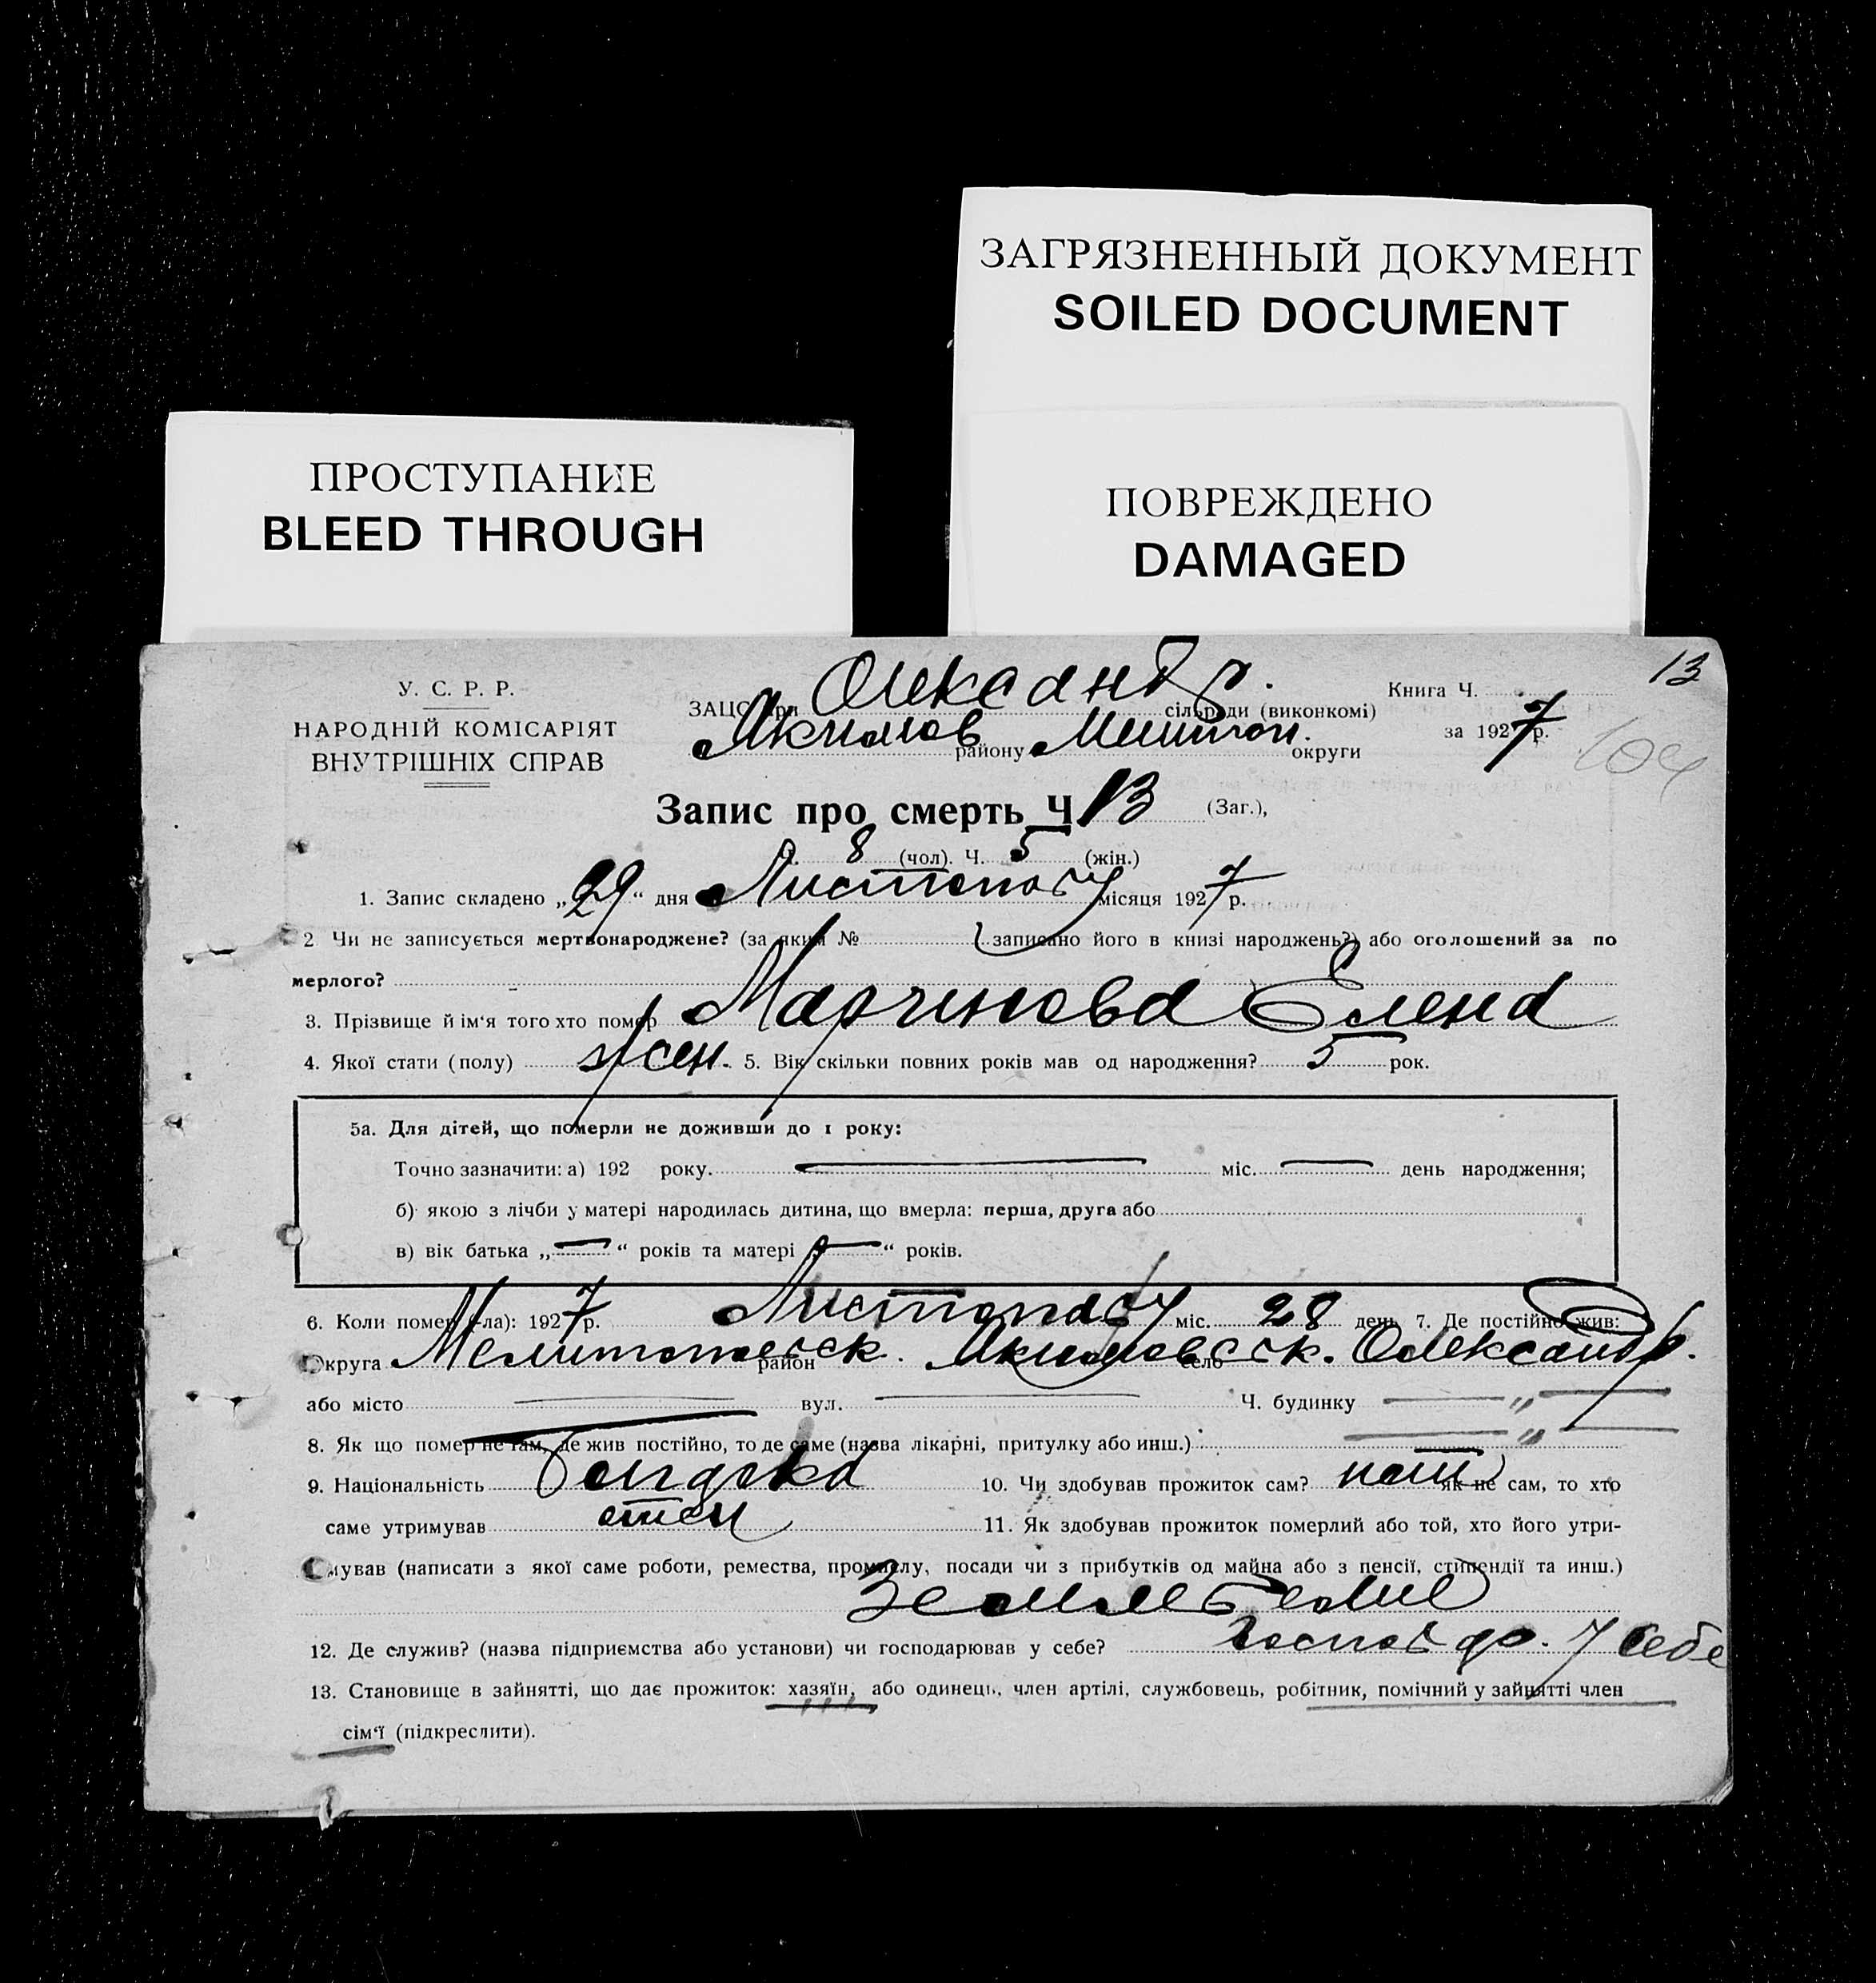 ЗАГРЯЗНЕННЫЙ ДОКУМЕНТ
SOILED DOCUMENT
ПРОСТУПАНИЕ
BLEED THROUGH
ПОВРЕЖДЕНО
DAMAGED
13
У. С. Р. Р.
НАРОДНІЙ КОМІСАРІЯТ
ВНУТРІШНІХ СПРАВ
ЗАЦС при Олександр. сільради (виконкомі)
Якимов району округи
Книга Ч.
за 1927 р.
Запис про смерть Ч 13 (Заг.),
Ч. 8 (чол). Ч. 5 (жін.)
1. Запис складено „29“ дня Листопаду місяця 1927 р.
2 Чи не записується мертвонароджене? (за яким № записано його в книзі народжень?) або оголошений за по
мерлого?
3. Прізвище й ім‘я того хто помер Марчинова Елена
4. Якої стати (полу) жен. 5. Вік скільки повних років мав од народження? 5 рок.
5а. Для дітей, що померли не доживши до 1 року:
Точно зазначити: а) 192 року. міс. день народження;
б) якою з лічби у матері народилась дитина, що вмерла: перша, друга або
в) вік батька „ “ років та матері „ “ років.
6. Коли помер (-ла): 1927 р. Листопаду міс. 28 день 7. Де постійно жив:
Округа Мелитопольск. район Якимовськ. село Олександр.
або місто вул. Ч. будинку „
8. Як що помер не там, де жив постійно, то де саме (назва лікарні, притулку або инш.) „
9. Національність Болгарка 10. Чи здобував прожиток сам? як не сам, то хто
саме утримував отец 11. Як здобував прожиток померлий або той, хто його утри-
мував (написати з якої саме роботи, ремества, промислу, посади чи з прибутків од майна або з пенсії, стипендії та инш.)
12. Де служив? (назва підприємства або установи) чи господарював у себе? господар. у себе
13. Становище в зайнятті, що дає прожиток: хазяїн, або одинець, член артілі, службовець, робітник, помічний у зайнятті член
сім‘ї (підкреслити).